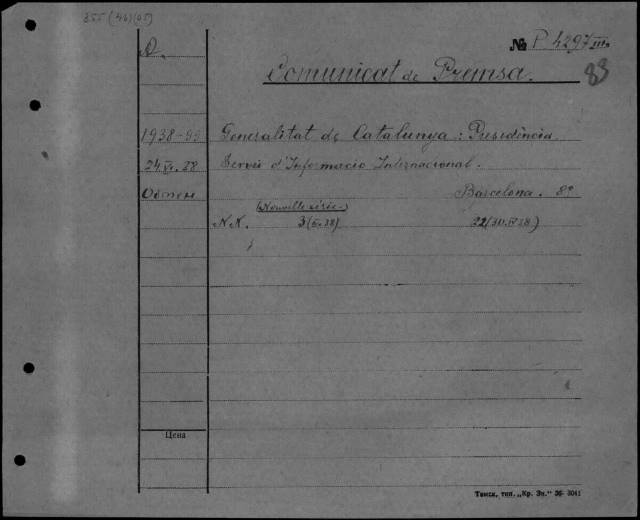 355 (46) (05)
№ P. 4297 III
A.
83
Comunicat de Premsa.
1938-39 Generalitat de Catalunya: Presidència.
24.VI.38 Servei d'Informació Internacional.
Обмен Barcelona. 8º
(Nouvelle série)
N.N. 3 22 (30.IV.38)
Цена
Томск, тип. „Кр. Зн." 36- 3041